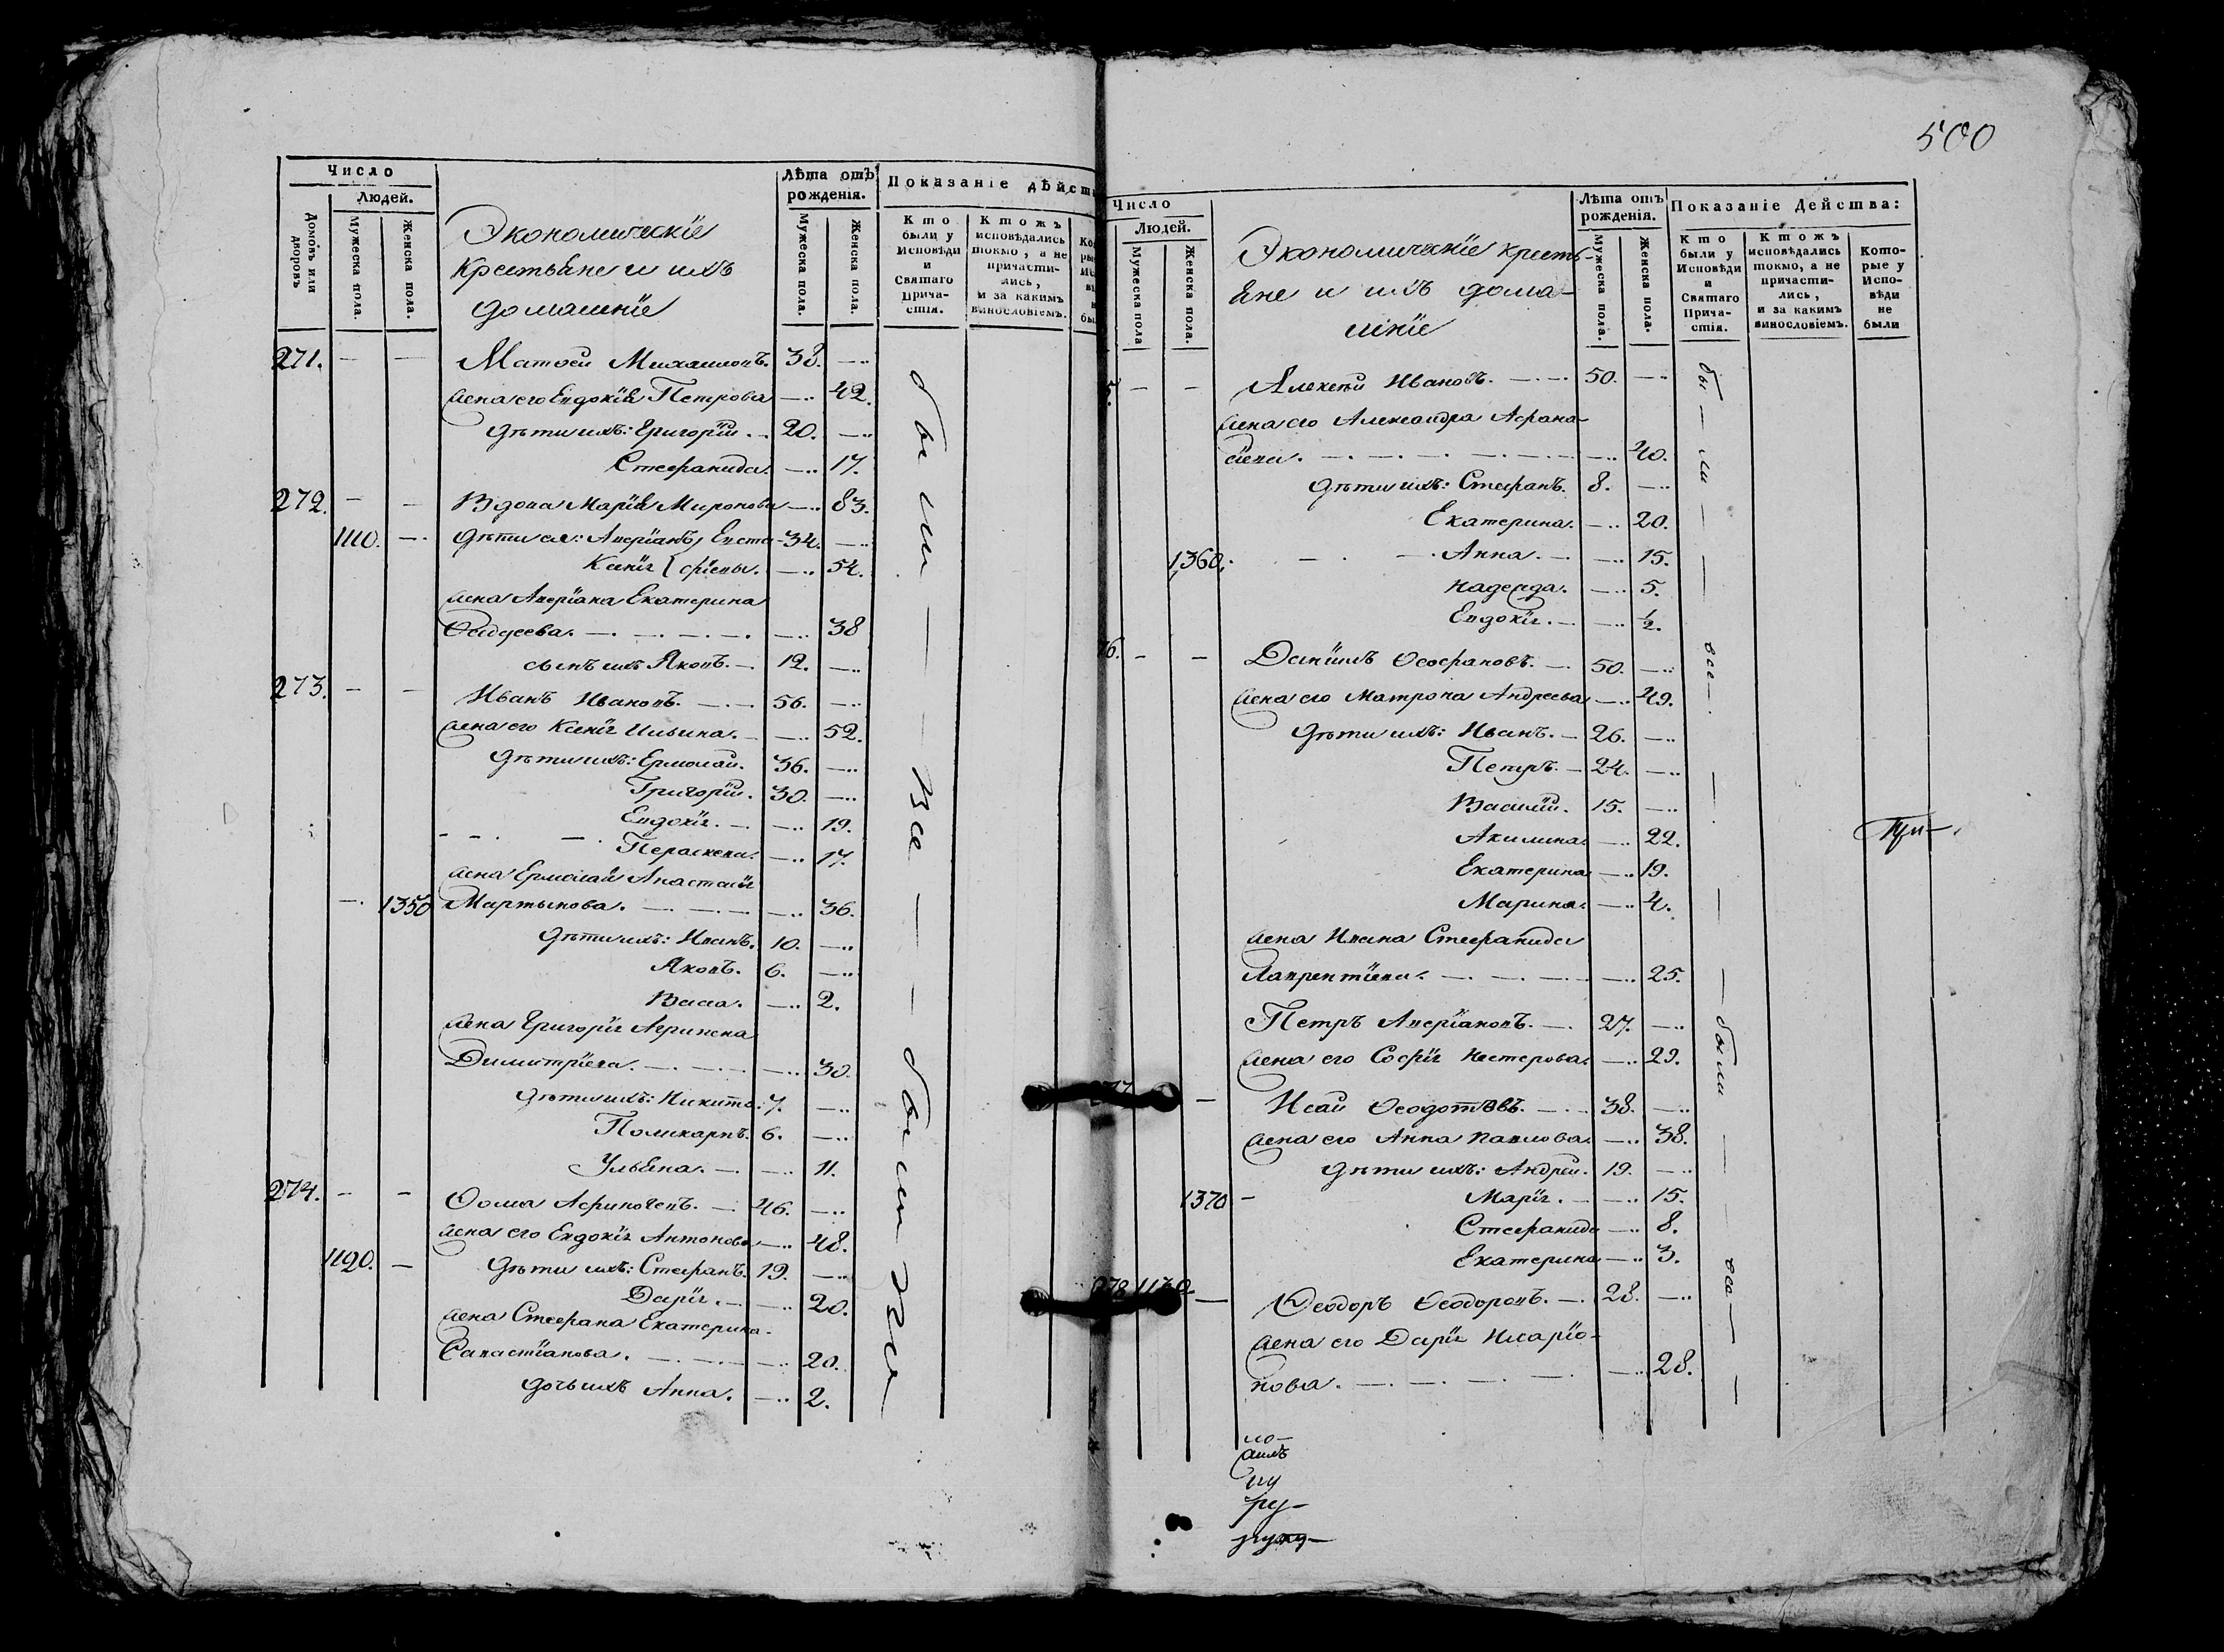 Число
Людей.
Домовъ или дворовъ
Мужеска пола.
Женска пола.
Экономическіе
крестьяне и ихъ
домашніе
Лѣта отъ
рожденія.
Мужеска пола.
Женска пола.
Показаніе дѣйст
Кто
были у
Исповѣди
и
Святаго
Прича-
стія.
Ктожъ
исповѣдались
токмо, а не
причасти-
лись,
и за какимъ
винословіемъ.
271. — — Матѳей Михаиловъ. 38. —
жена его Евдокія Петрова — 42.
дѣти ихъ: Григорій. 20. —
Стефанида. — 17.
272. — — Вдова Марія Миронова — 83.
1110. — дѣти ея: Аверіанъ, Евста- 34. —
Ксенія фіевы. — 54.
жена Аверіана Екатерина
Ѳаддеева. — 38
сынъ ихъ Яковъ. — 12. —
273. — — Иванъ Ивановъ. — 56. —
жена его Ксенія Ильина. — 52.
дѣти ихъ: Ермолай. 36. —
Григорій. 30. —
Евдокія. — 19.
Параскева. — 17.
жена Ермолая Анастасія
— 1350 Мартынова. — 36.
дѣти ихъ: Иванъ. 10. —
Яковъ. 6. —
Васса. — 2.
жена Григорія Агрипена
Димитріева. — 30.
дѣти ихъ: Никита. 7. —
Поликарпъ. 6. —
Ульяна. — 11.
274. — — Ѳома Афиногенъ. — 46. —
жена его Евдокія Антонова — 48.
1120. — дѣти ихъ: Стефанъ. 19. —
Дарія. — 20.
жена Стефана Екатерина
Савастіанова. — 20.
дочь ихъ Анна. — 2.
были — Все — были Все
500
Число
Людей.
Мужеска пола
Женска пола.
Экономическіе кресть-
яне и ихъ дома-
шніе
Лѣта отъ
рожденія.
Мужеска пола.
Женска пола.
Показаніе Дейсшва:
Кто
были у
Исповѣди
и
Святаго
Прича-
стія.
Ктожъ
исповѣдались
токмо, а не
причасти-
лись,
и за какимъ
винословіемъ.
Кото-
рые у
Испо-
вѣди
не
были
5. — — Алексѣй Ивановъ. — 50. —
жена его Александра Афана-
сіева. — 40.
дѣти ихъ: Стефанъ. 8. —
Екатерина. — 20.
1360. — Анна. — 15.
Надежда. — 5.
Евдокія. — ½.
76. — — Даніилъ Ѳеофановъ. — 50. —
жена его Матрона Андреева — 49.
дѣти ихъ: Иванъ. — 26. —
Петръ. — 24. —
Василій. 15. —
Акилина. — 22.
Екатерина — 19.
Марина. — 4.
жена Ивана Стефанида
Лаврентіева. — 25.
Петръ Аверіановъ. — 27. —
жена его Софія Нестерова. — 29.
— Исай Ѳеодотовъ. — 38. —
жена его Анна Павлова. — 38.
дѣти ихъ: Андрей. 19. —
1370 — Марія. — 15.
Стефанида — 8.
Екатерина — 3.
278 1130. — Ѳеодоръ Ѳеодоровъ. — 28. —
жена его Дарія Иларіо-
нова. — 28.
бы — ли — все — были — все —